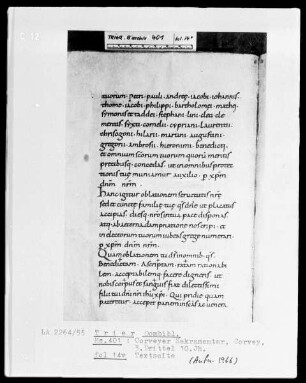 TRIER, Dombibl. 401 fol. 14v
tuorum. petri. pauli. andreę. iacobi. iohannis.
thome. iacobi. philippi. bartholomei. mathei.
symonis et taddei. stephani. lini. cleti. cle
mentis. sixti. cornelii. cypriani. Laurentii.
chrisogoni. hilarii. martini. augustini.
gregorii. ambrosii. hieronimi. benedicti.
et omnium scorum tuorum quorū meritis
precibusq. concedas. ut in omnibus protec
tionis tuę muniamur auxilio. p xpm
dnm nrm.
Hanc igitur oblationem seruitutis nrę
sed et cunctę familię tuę qs dne ut placatus
accipias. diesq. nros in tua pace disponas.
atq. ab aeterna damnatione nos eripi. et
in electorum tuorum iubeas grege numerari.
p xpm dnm nrm.
Quam oblationem tu ds in omnib. qs.
benedictam. Ascriptam. ratam. rationabi
lem. acceptabilemq. facere digneris. ut
nobis corpus et sanguis fiat dilectissimi
filii tui dni nri ihu xpi. Qui pridie quam
pateretur. accepit panem in scās ac uenera
LA 2264/55 Trier Dombibl.
Hs.401 : Corveyer Sakramentar, Corvey,
3.Drittel 10.Jh.
fol 14v Textseite
(Aufn. 1966)